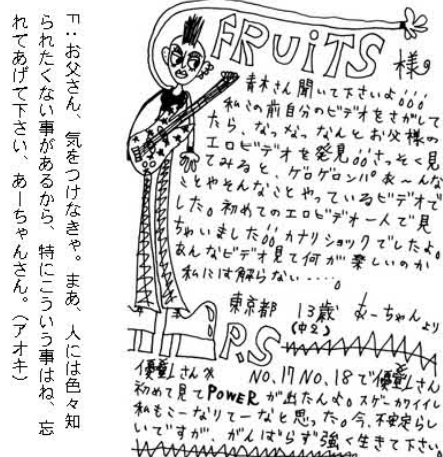 FRUiTS 様。
青木さん聞いて下さいよ。。。
私この前自分のビデオをさがして
たら、なっなっなんとお父様の
エロビデオを発見。。さっそく見
てみると、ゲロゲロンパあ〜んな
ことやそんなことやっているビデオで
した。初めてのエロビデオ一人で見
ちゃいました。。カナリショックでしたよ。
あんなビデオ見て何が楽しいのか
私には解らない・・・・。
東京都 13歳 あーちゃんより
(中2)
P.S
さん NO.17 NO.18で さん
初めて見てPOWERが出たんよ。スゲーカワイイし
私もこーなりてーなと思った。今、不安定らし
いですが、がんばらず強く生きて下さい。
F：お父さん、気をつけなきゃ。まあ、人には色々知
られたくない事があるから、特にこういう事はね、忘
れてあげて下さい、あーちゃんさん。（アオキ）